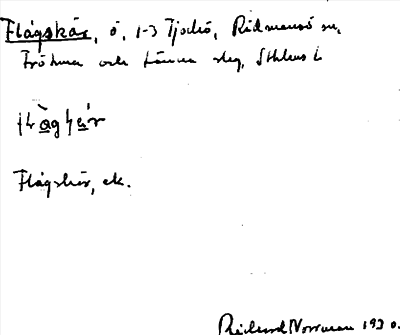 Flågskär, ö, 1-3 Tjockö, Rådmansö sn,
Fröåkers och Länna skg, Sthlms l.
Flågskär, ek.
Rickard Norrman 1930.